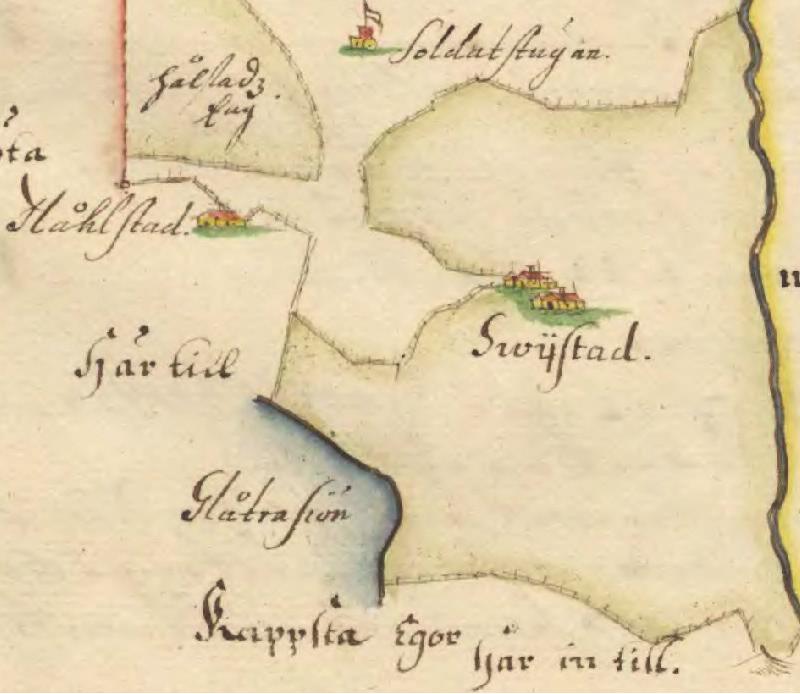 Soldatstugan.
Hålstadz
hag
ta
Håhlstad.
Swijstad.
Här till
Glåtrasiön
Kappsta Egor
här in till.